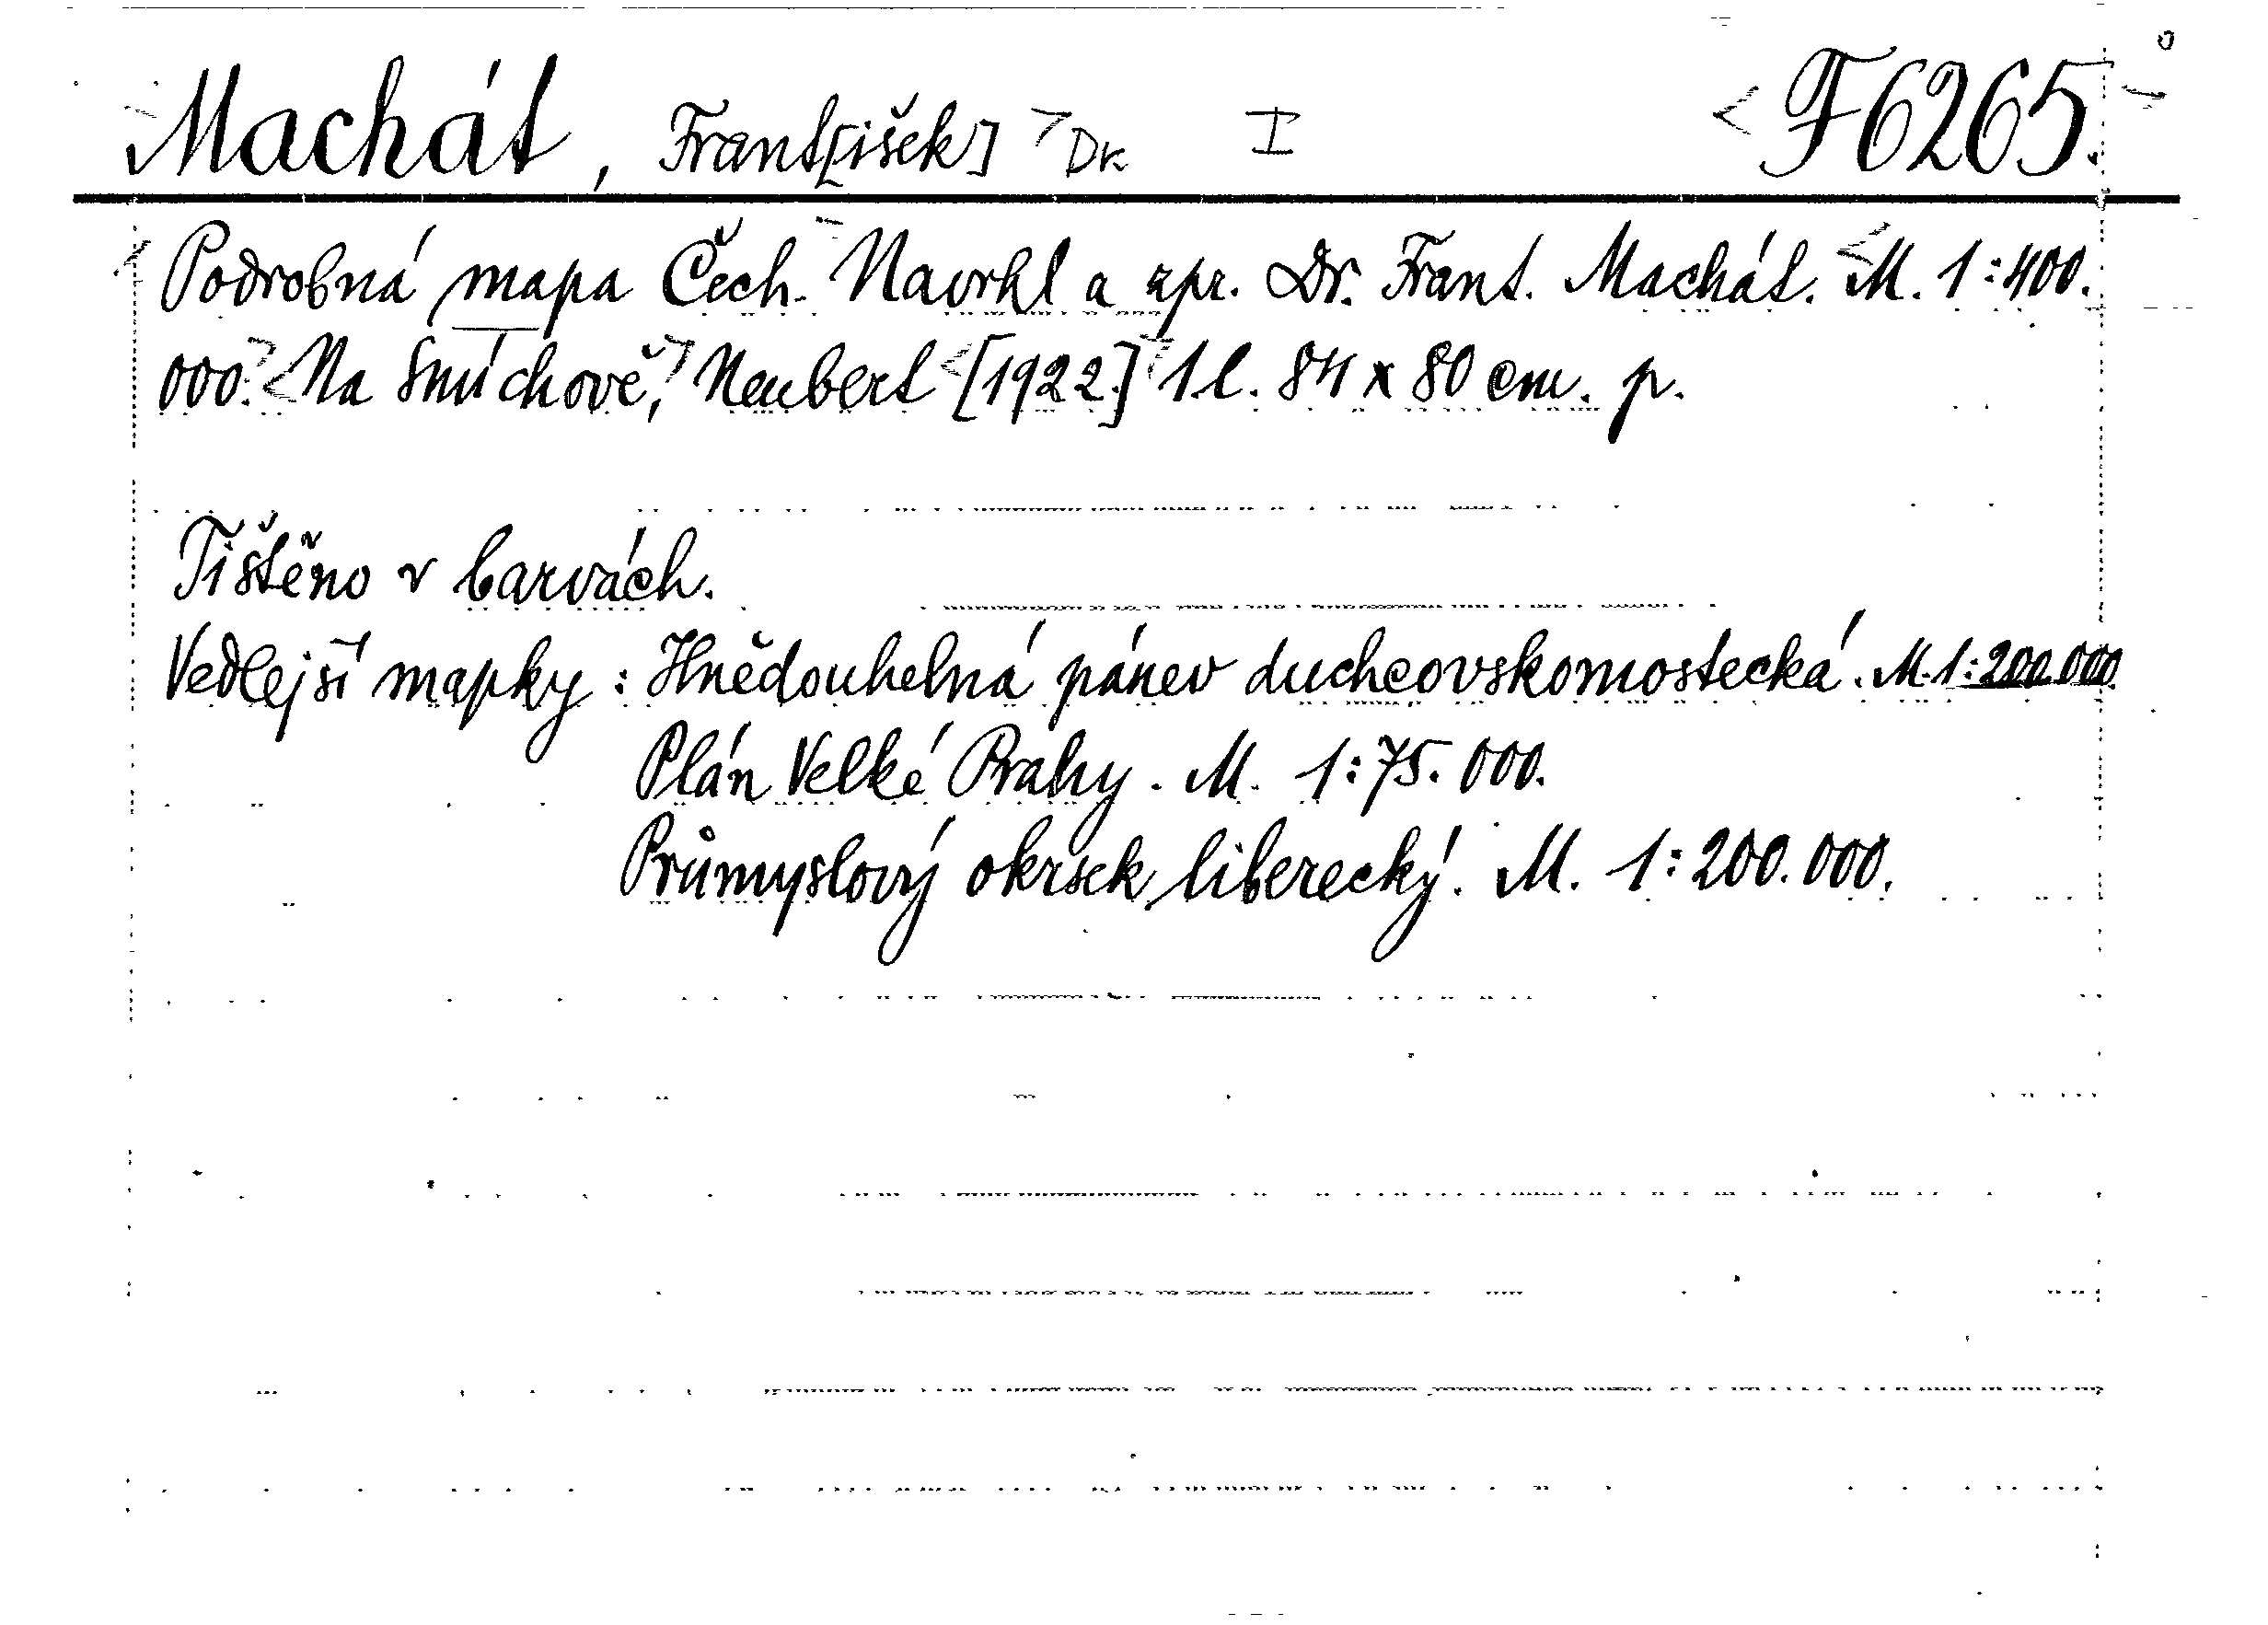 Machát, Frant[išek] Dr. I F6265.
Podrobná mapa Čech. Navrhl a zpr. Dr. Frant. Machát. M. 1:400.
000. Na Smíchově, Neubert [1922.] 1 l. 84 x 80 cm. p.
Tištěno v barvách.
Vedlejší mapky: Hnědouhelná pánev duchcovskomostecká. M. 1:200.000.
Plán Velké Prahy. M. 1:75.000.
Průmyslový okrsek liberecký. M. 1:200.000.